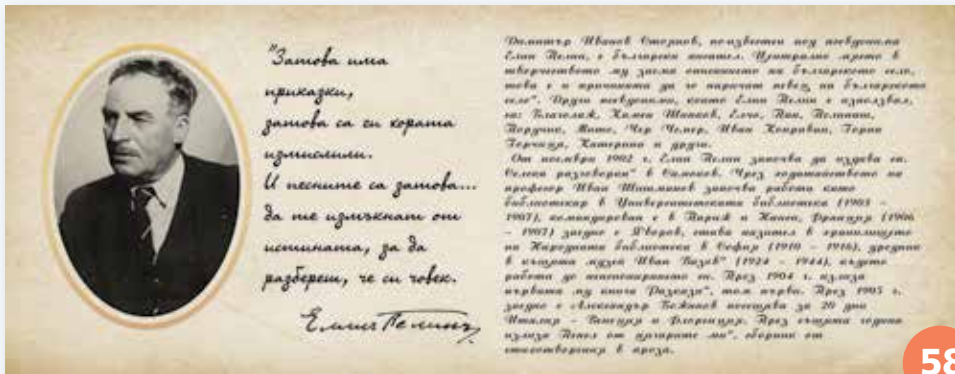 "Затова има
приказки,
затова са си хората
измислили.
И песните са затова...
да те измъкнат от
истината, за да
разбереш, че си човек.
Елинъ Пелинъ
Димитър Иванов Стоянов, по-известен под псевдонима
Елин Пелин, е български писател. Централно място в
творчеството му заема описанието на българското село,
това е и причината да го наричат певец на българското
село". Други псевдоними, които Елин Пелин е използвал,
са: Благолаж, Камен Шипков, Елчо, Пан, Пелинаш,
Поручик, Мито, Чер Чемер, Иван Коприван, Горна
Горчица, Катерина и други.
От ноември 1902 г. Елин Пелин започва да издава сп.
Селска разговорка" в Симоков. Чрез ходатайството на
професор Иван Шишманов започва работа като
библиотекар в Университетската библиотека (1903 -
1907), командирован е в Париж и Нанси, Франция (1906
- 1907) заедно с Яворов, става пазител в хранилището
на Народната библиотека в София (1910 - 1916), уредник
в къщата музей Иван Вазов" (1924 - 1944), където
работа до пенсионирането си. През 1904 г. излиза
първата му книга Разкази", том първи. През 1905 г.
заедно с Александър Божинов посещава за 20 дни
Италия - Венеция и Флоренция. През същата година
излиза Пепел от цигарите ми", сборник от
стихотворения в проза.
58